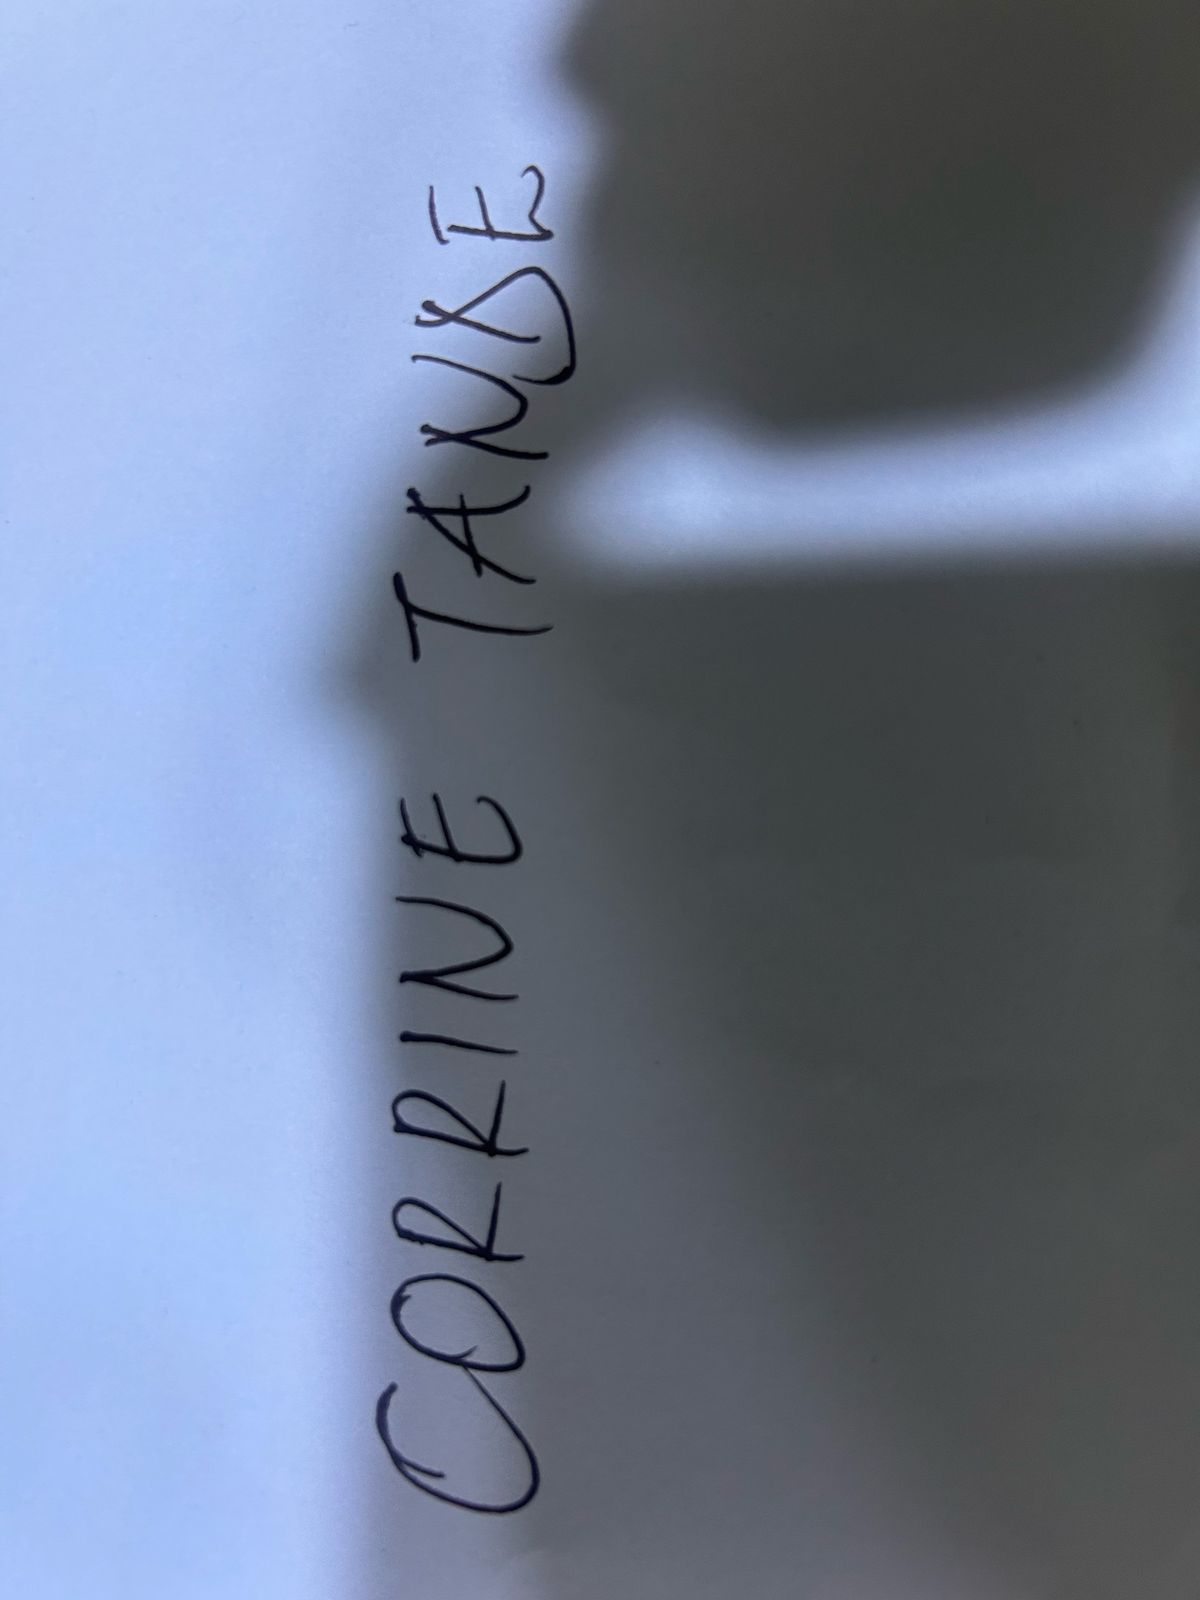 CORRINE TANSE